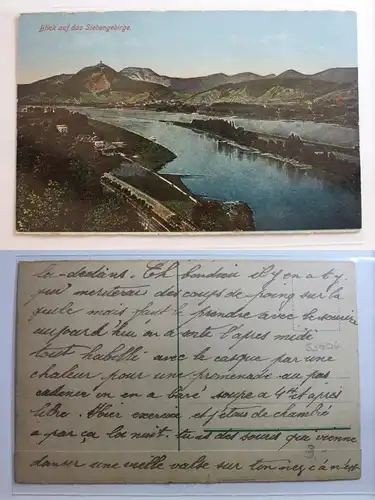 Blick auf das Siebengebirge.
la-dedans. Eh bondieu il y en a t-y
qui meriterai des coups de poing sur la
gueule mais faut le prendre avec le sourire
aujourd'hui on a sorti l'apres midi
tout habillé avec la casque par une
chaleur pour une promenade au pas
cadencer on en a baré soupe a 4h et après
libre. Hier exercice et j'etais de chambré
a par ça la nuit. tu as des souris qui vienne
danser une vieille valse sur ton nez ça n'est